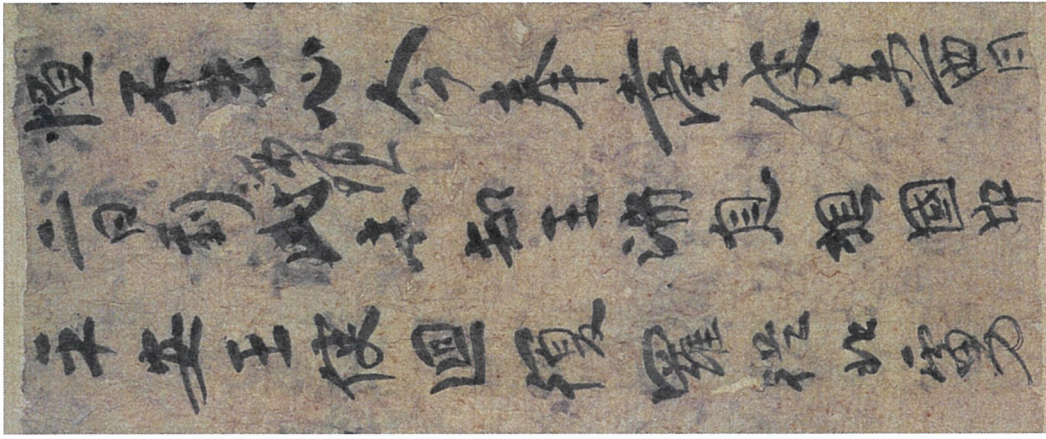 恒不去心今奉臺使來西月
二日到此海頭未知王消息想國中
平安王使迴復羅從北虜